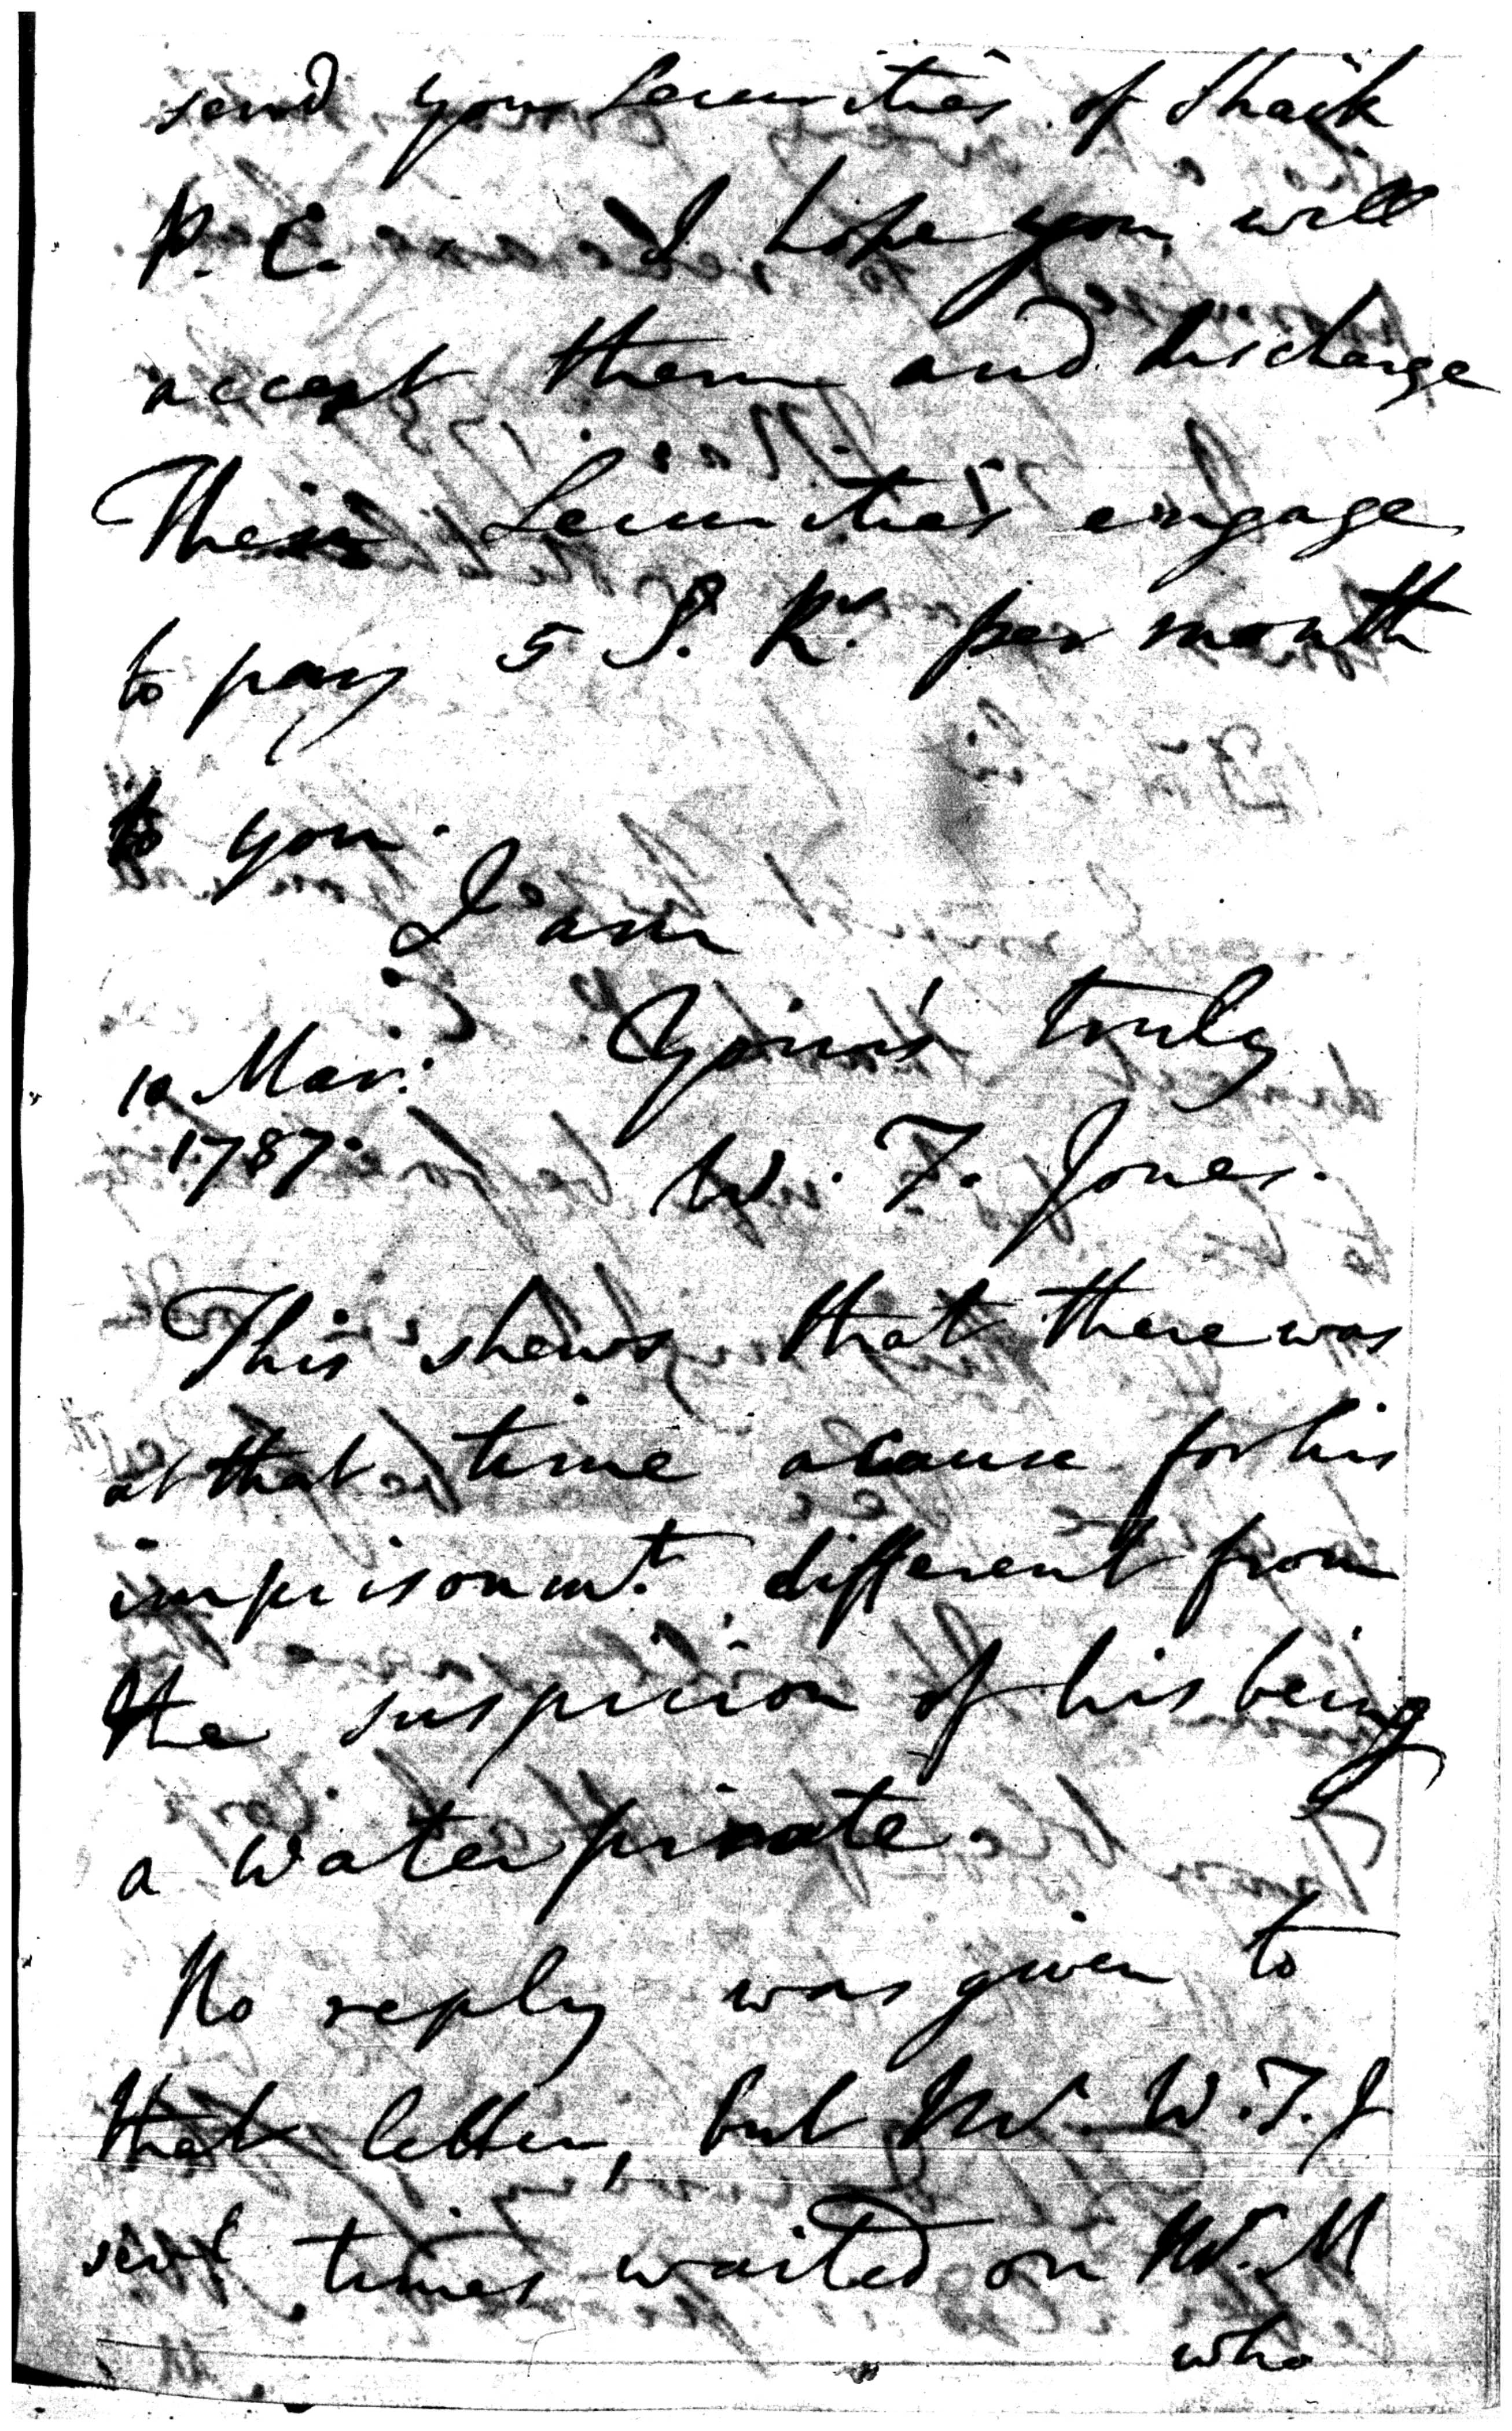 send you Securities of Shaik
P. C. I hope you will
accept them and discharge
These Securities engage
to pay 5 S. Rs. per month
to you.
I am
Your's truly
10 Mar: 1787.
W. F. Jones.
This shews that there was
at that time a cause for his
imprisonmt. different from
the suspicion of his being
a water pirate.
No reply was given to
that letter, but Mr. W. F. J
sevl. times waited on Mr. M
who